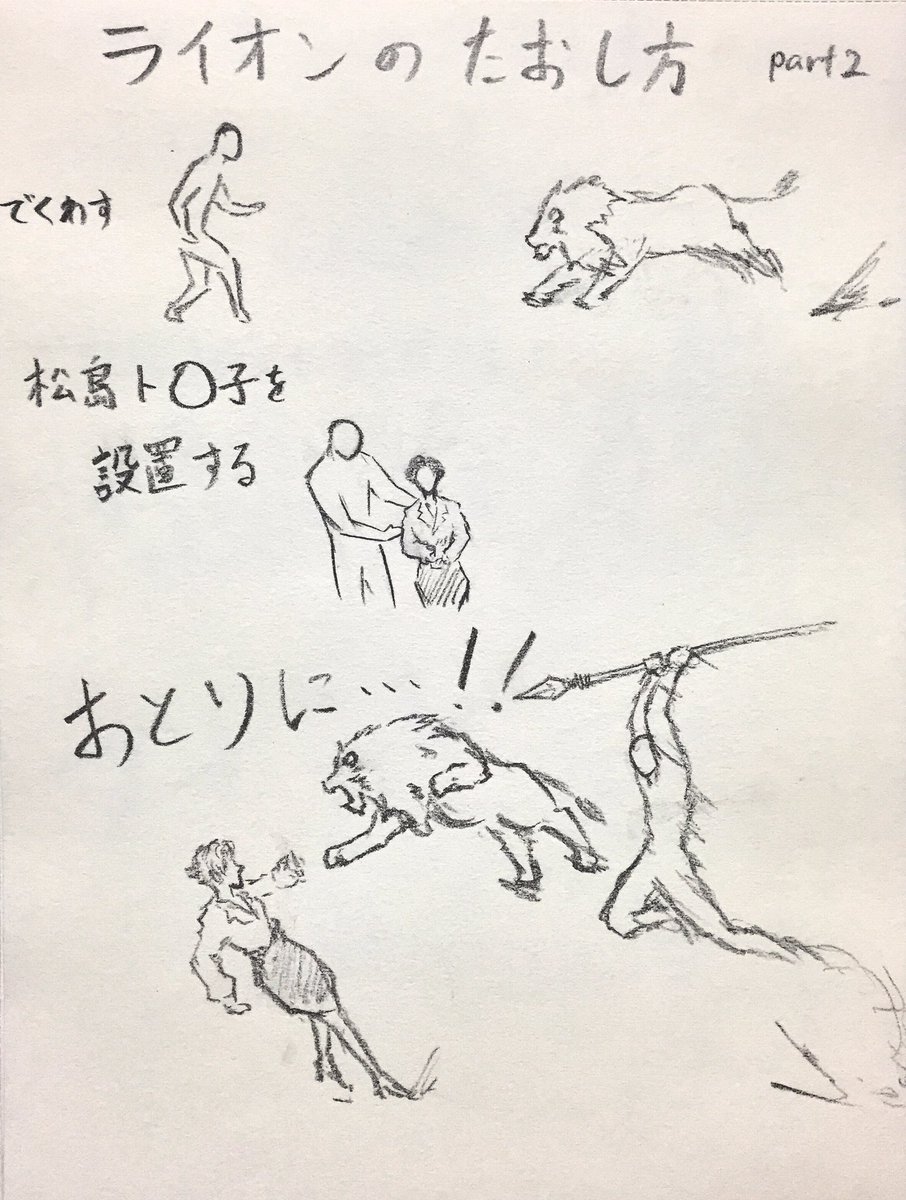 ライオンのたおし方 part2
でくわす
松島ト〇子を
設置する
おとりに…!!